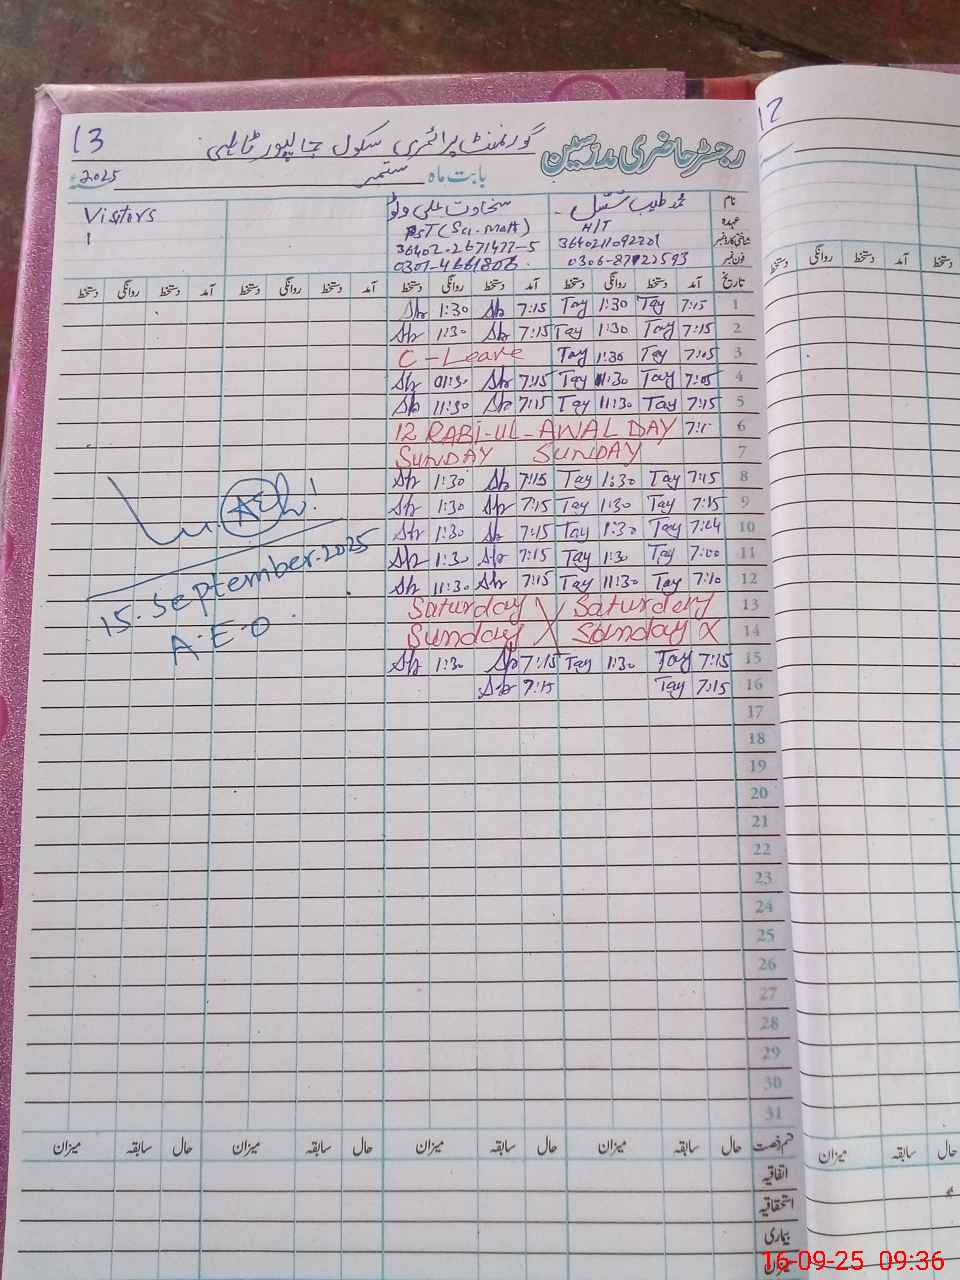 13 گورنمنٹ پرائمری سکول
رجسٹر حاضری مدرسین
بابت ماہ ستمبر 2025
نام محمد طیب سخاوت علی وٹو Visitors
عہدہ H/T PST (Sci-Math) 1
شناختی کارڈ نمبر 3640211092201 36402-2671477-5
فون نمبر
تاریخ آمد دستخط روانگی دستخط آمد دستخط روانگی دستخط آمد دستخط روانگی دستخط آمد دستخط روانگی دستخط
1 7:15 Tay 1:30 Tay 7:15 Sh 1:30 Sh
2 7:15 Tay 1:30 Tay 7:15 Sh 1:30 Sh
3 7:05 Tay 1:30 Tay C-Leave
4 7:05 Tay 11:30 Tay 7:15 Sh 01:30 Sh
5 7:15 Tay 11:30 Tay 7:15 Sh 11:30 Sh
6 12 RABI-UL-AWAL DAY
7 SUNDAY SUNDAY
8 7:15 Tay 1:30 Tay 7:15 Sh 1:30 Sh
9 7:15 Tay 1:30 Tay 7:15 Sh 1:30 Sh
10 7:14 Tay 1:30 Tay 7:15 Sh 1:30 Sh
11 7:00 Tay 1:30 Tay 7:15 Sh 1:30 Sh
12 7:10 Tay 11:30 Tay 7:15 Sh 11:30 Sh
13 Saturday X Saturday
14 Sunday X Sunday X
15 7:15 Tay 1:30 Tay 7:15 Sh 1:30 Sh
16 7:15 Tay 7:15 Sh
15-September-2025
A.E.O
17
18
19
20
21
22
23
24
25
26
27
28
29
30
31
قسم رخصت حال سابقہ میزان حال سابقہ میزان حال سابقہ میزان حال سابقہ میزان
اتفاقیہ
استحقاقیہ
بیماری
میزان
12
دستخط روانگی دستخط آمد دستخط
میزان سابقہ حال
16-09-25 09:36